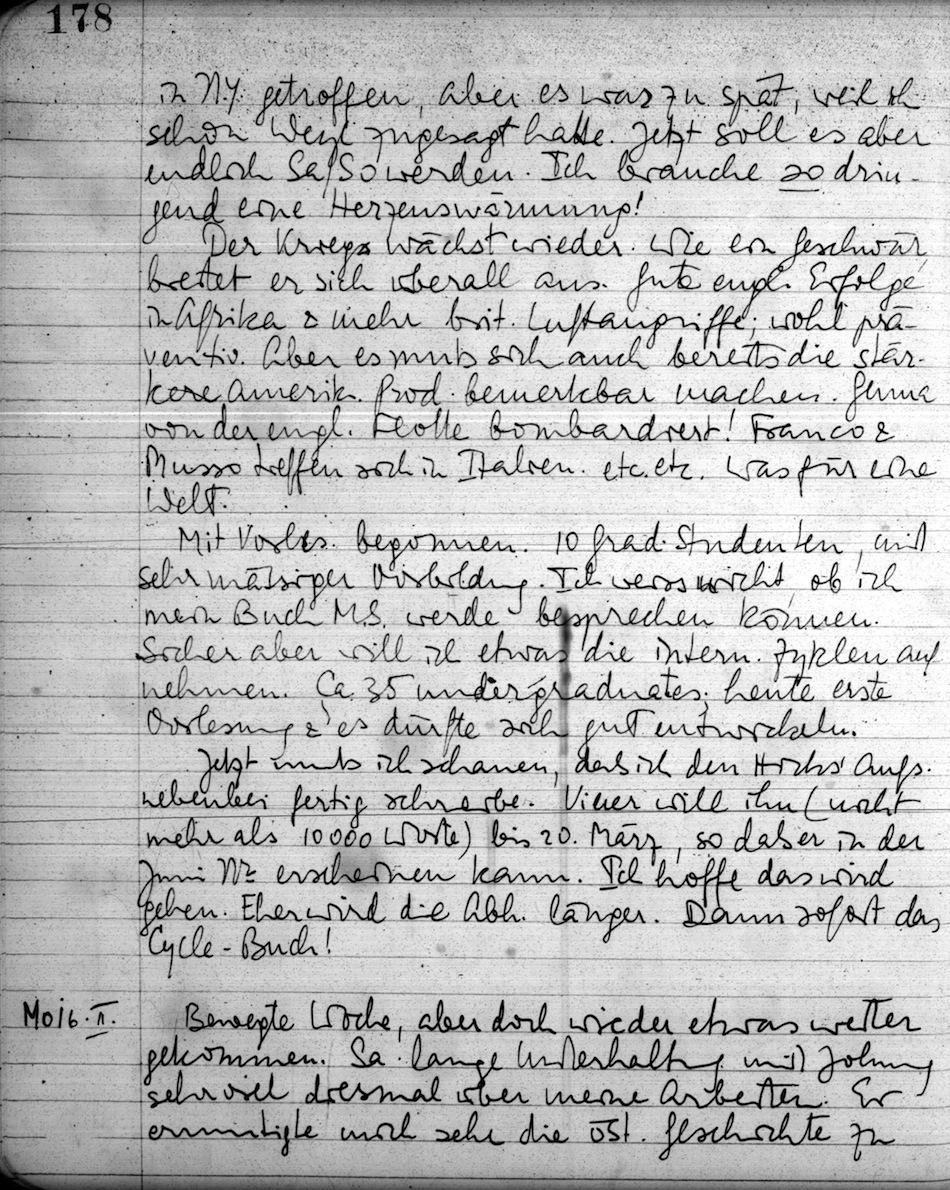 178
in N.Y. getroffen, aber es war zu spät, weil ich
schon Weyl zugesagt hatte. Jetzt soll es aber
endlich Sa/So werden. Ich brauche so drin-
gend eine Herzenswärmung!
Der Krieg wächst wieder. Wie ein Geschwür
breitet er sich überall aus. Gute engl. Erfolge
in Afrika & mehr brit. Luftangriffe; wohl prä-
ventiv. Aber es muss sich auch bereits die stär-
kere Amerik. Prod. bemerkbar machen. Genua
von der engl. Flotte bombardiert! Franco &
Musso treffen sich in Italien. etc. etc. Was für eine
Welt.
Mit Vorles. begonnen. 10 Grad. Studenten, mit
sehr mässiger Vorbildung. Ich weiss nicht, ob ich
mein Buch M.S. werde besprechen können.
Sicher aber will ich etwas die intern. Zyklen auf
nehmen. Ca. 35 undergraduates; heute erste
Vorlesung & es dürfte sich gut entwickeln.
Jetzt muss ich schauen, dass ich den Hicks Aufs.
nebenbei fertig schreibe. Viner will ihn (nicht
mehr als 10000 Worte) bis 20. März, so dass er in der
Juni Nr. erscheinen kann. Ich hoffe das wird
gehen. Eher wird die Abh. länger. Dann sofort das
Cycle-Buch!
Mo 16. II.
Bewegte Woche, aber doch wieder etwas weiter
gekommen. Sa. lange Unterhaltung mit Johnny
sehr viel diesmal über meine Arbeiten. Er
ermutigte mich sehr die öst. Geschichte zu